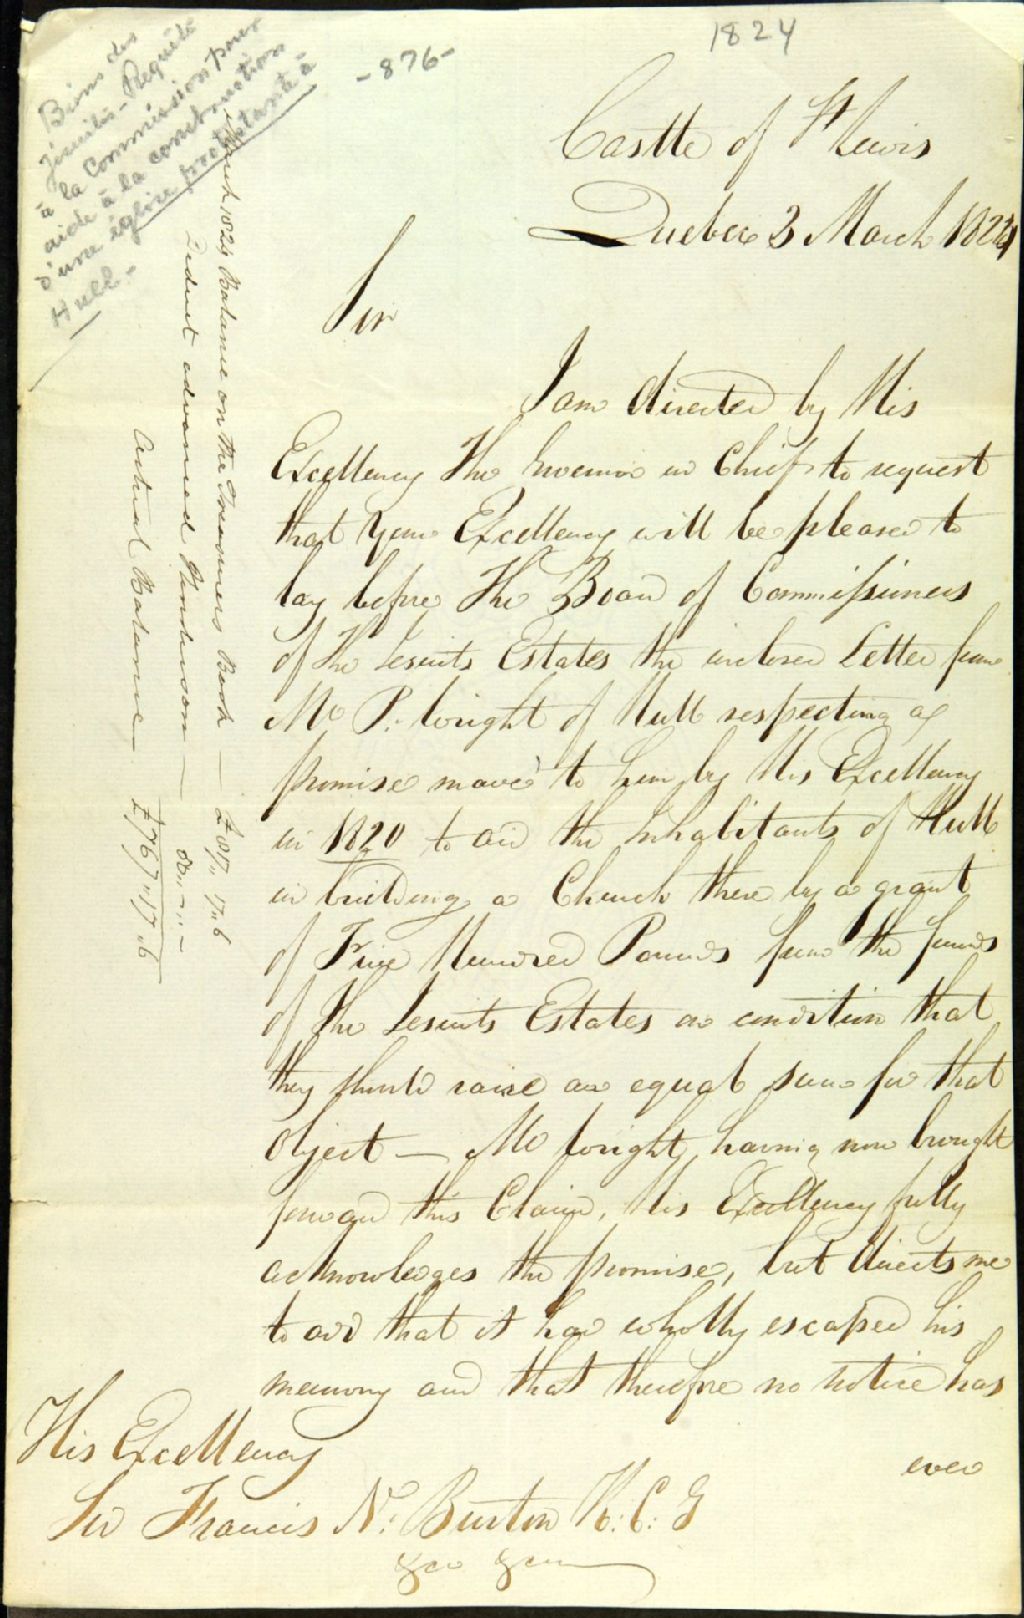 1824
-876-
Biens des
Jésuites - Requête
à la Commission pour
aide à la construction
d'une église protestante à
Hull -
Castle of St Lewis
Quebec 3 March 1824
Sir
I am directed by His
Excellency The Governor in Chief to request
that Your Excellency will be pleased to
lay before The Board of Commissioners
of The Jesuits Estates the inclosed Letter from
Mr P. Wright of Hull respecting a
promise made to him by His Excellency
in 1820 to aid the Inhabitants of Hull
in building a Church there by a grant
of Five Hundred Pounds from the funds
of The Jesuits Estates on condition that
they should raise an equal sum for that
object — Mr Wright having now brought
forward this Claim, His Excellency fully
acknowledges the promise, but directs me
to add that it had wholly escaped his
memory and that therefore no notice has
ever
His Excellency
Sir Francis N. Burton K: C: G
&c &c
March 1824 Balance on the Treasurers Book —
Deduct advanced —
Actual Balance £767"17"6